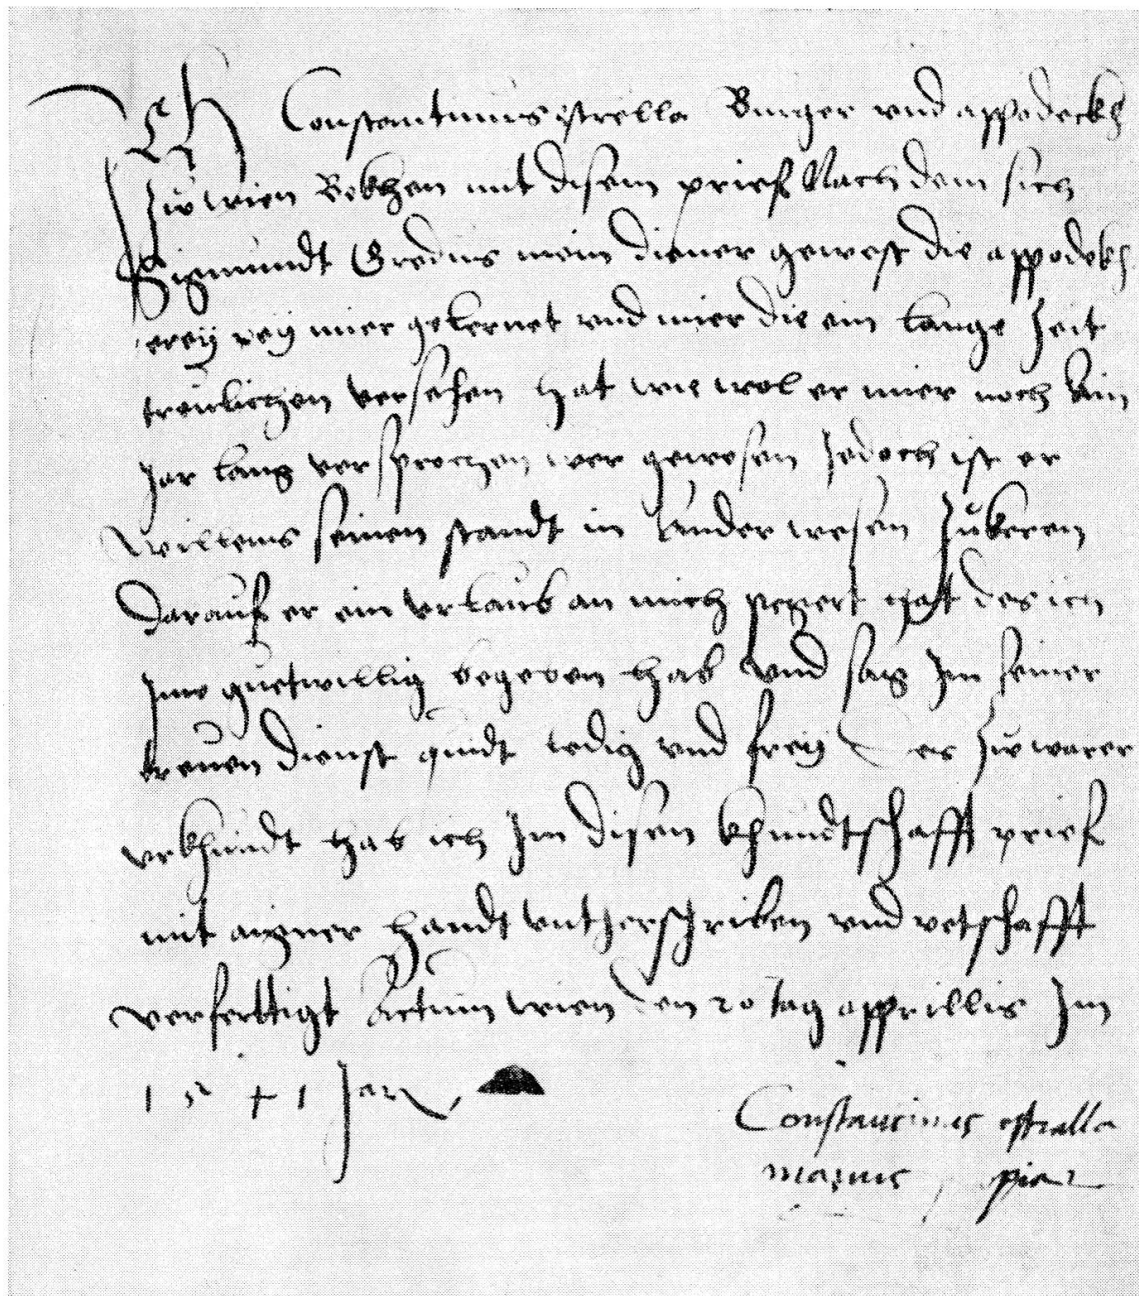 Ich Constantinus istrella Burger vnd appodeckh
Zw wien Bekhen mit disem prief Nach dem sich
Sigmundt Gredius mein diener gewest die appodekh
erey pey mier gelernet vnd mier die ein lange Zeit
treulichen versehen hat wie wol er mier noch ain
Jar lang versprochen wer gewesen Jedoch ist er
willens seinen standt in ander wesen Zukeren
darauf er ein vrlaub an mich pegert hat des ich
Jme guetwillig begeben hab vnd sag Jm seiner
treuen dienst quidt ledig vnd frey des Zw warer
vrkhundt hab ich Jm disen khundtschafft prief
mit aigner handt vntherschriben vnd petschafft
verferttigt Actum wien den 20 tag apprillis Jm
1541 Jar
Constancinus estralla